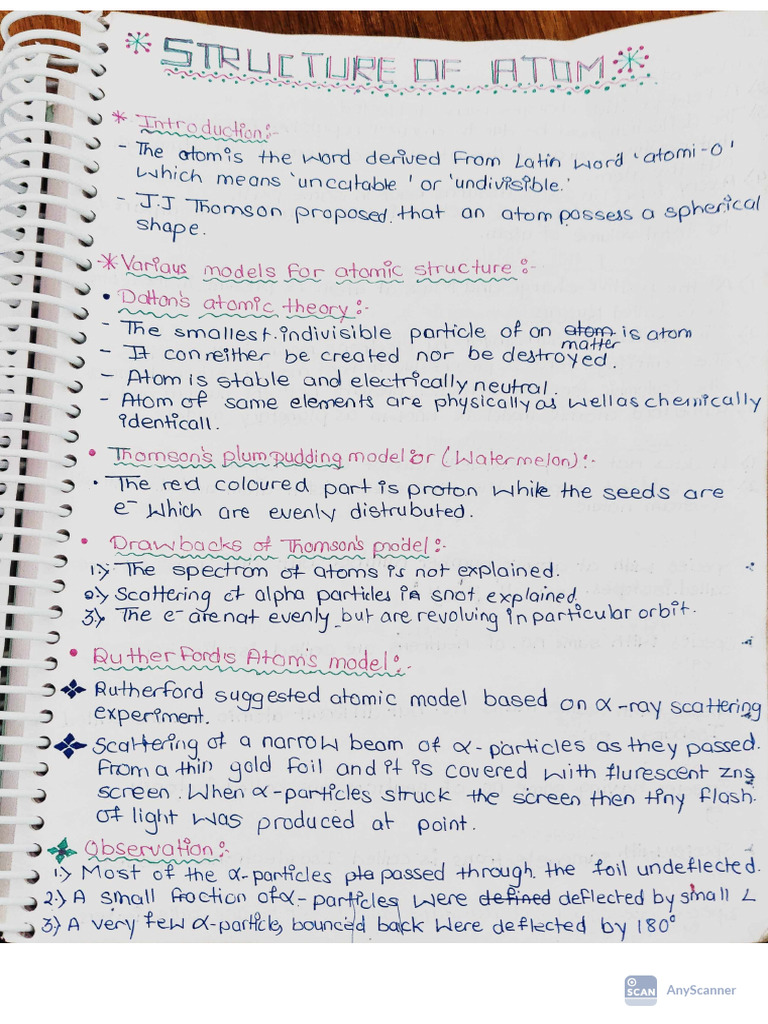 STRUCTURE OF ATOM
* Introduction:-
- The atom is the word derived From Latin word 'atomi-o'
which means 'uncutable' or 'undivisible.'
- J.J Thomson proposed that an atom possess a spherical
shape.
* Various models for atomic structure:-
• Dalton's atomic theory:-
- The smallest indivisible particle of an atom is atom
matter
- It can neither be created nor be destroyed.
- Atom is stable and electrically neutral.
- Atom of same elements are physically as well as chemically
identicall.
• Thomson's plum pudding model or (Watermelon):-
• The red coloured part is proton while the seeds are
e- which are evenly distrubuted.
• Drawbacks of Thomson's model:-
1.) The spectrom of atoms is not explained.
2.) Scattering of alpha particles is not explained.
3.) The e- are not evenly but are revolving in particular orbit.
• Rutherford's Atoms model:-
Rutherford suggested atomic model based on α-ray scattering
experiment.
Scattering of a narrow beam of α-particles as they passed.
From a thin gold foil and it is covered with flurescent zns
screen. When α-particles struck the screen then tiny flash.
Of light was produced at point.
Observation:-
1.) Most of the α-particles pta passed through the foil undeflected.
2.) A small fraction of α-particles were defined deflected by small ∠
3.) A very few α-particles bounced back were deflected by 180°
SCAN AnyScanner